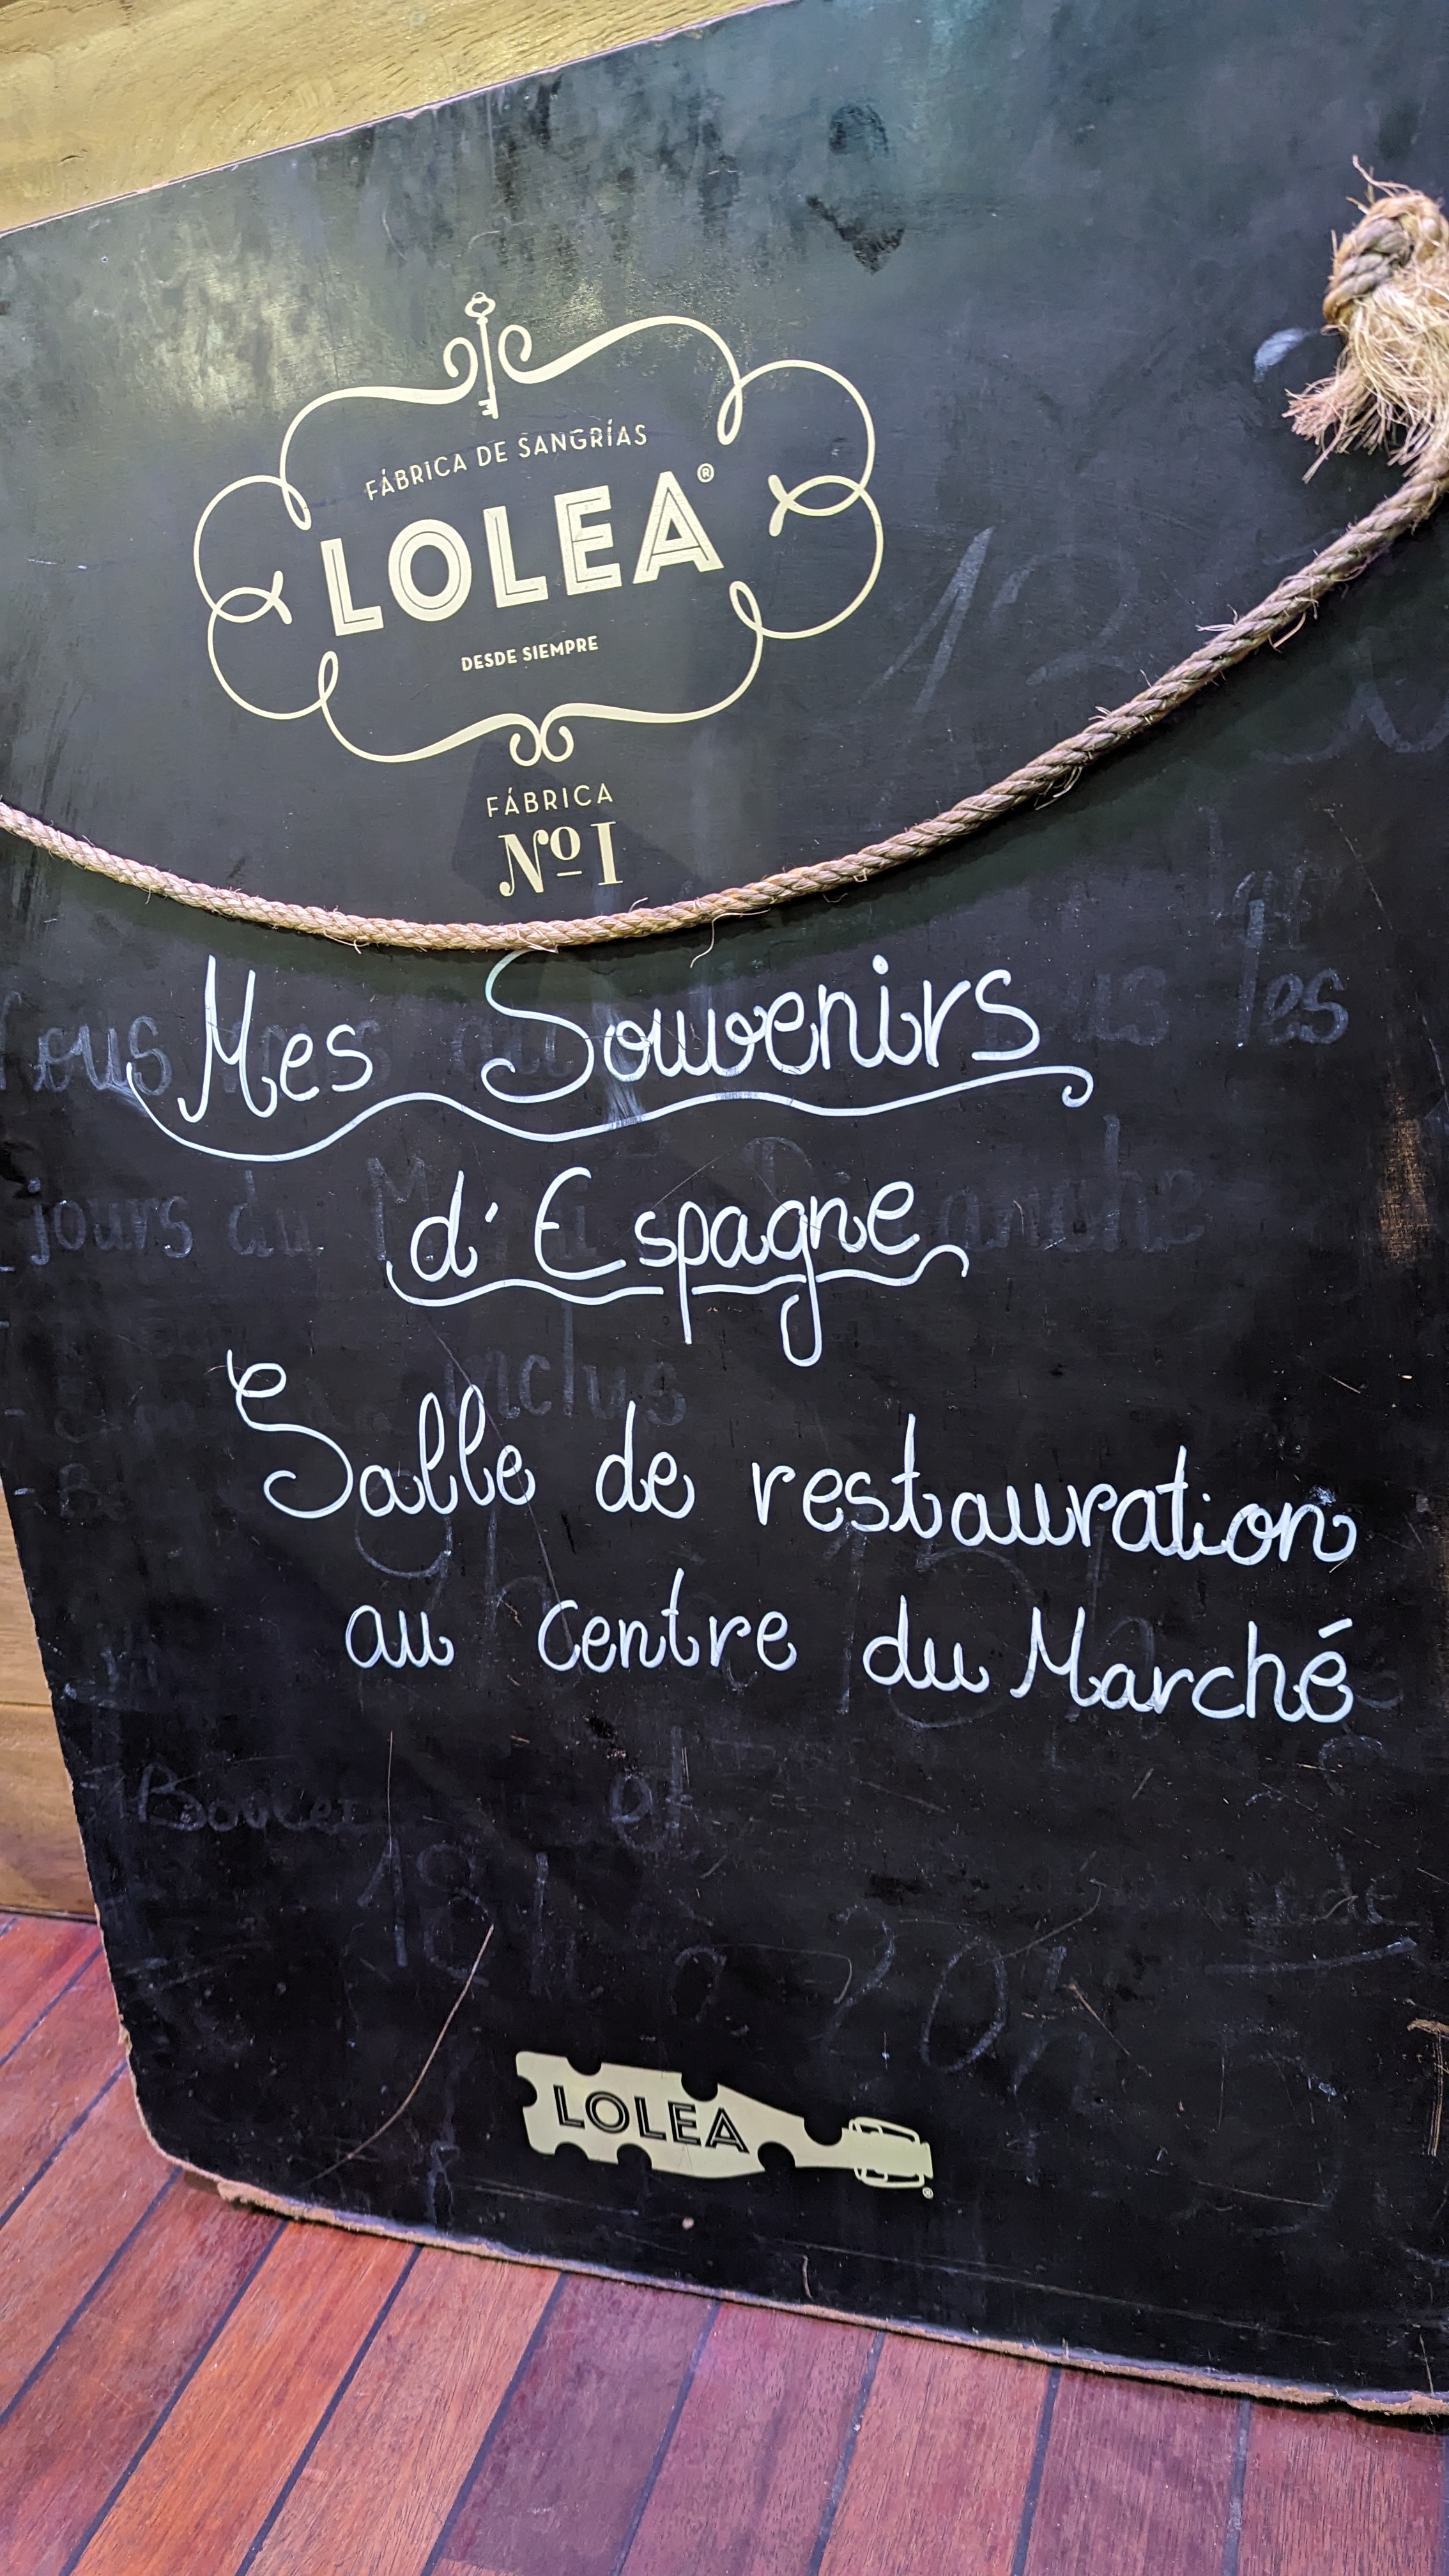 FÁBRICA DE SANGRÍAS
LOLEA®
DESDE SIEMPRE
FÁBRICA
Nº I
Mes Souvenirs
d'Espagne
Salle de restauration
au centre du Marché
LOLEA